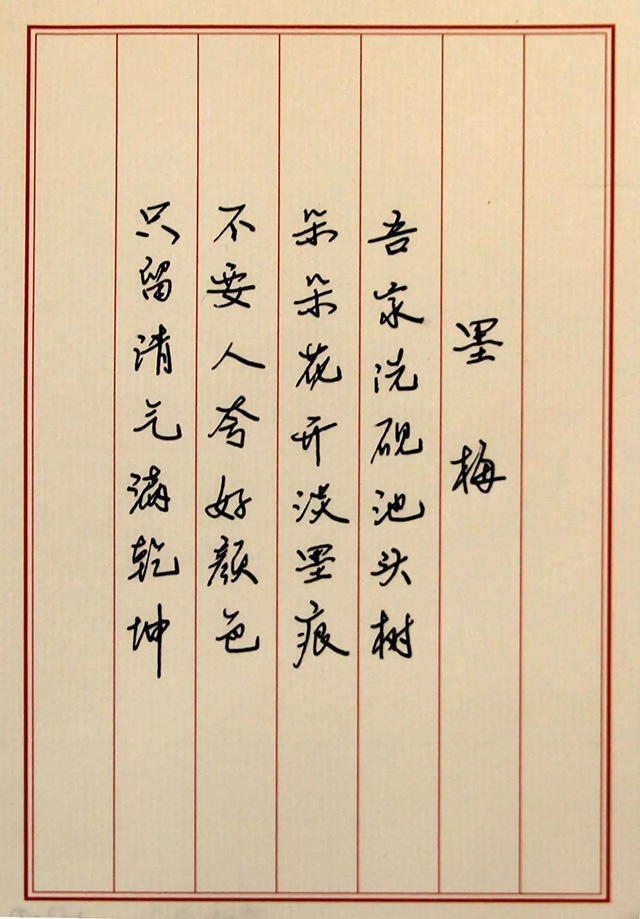 墨梅
吾家洗砚池头树
朵朵花开淡墨痕
不要人夸好颜色
只留清气满乾坤